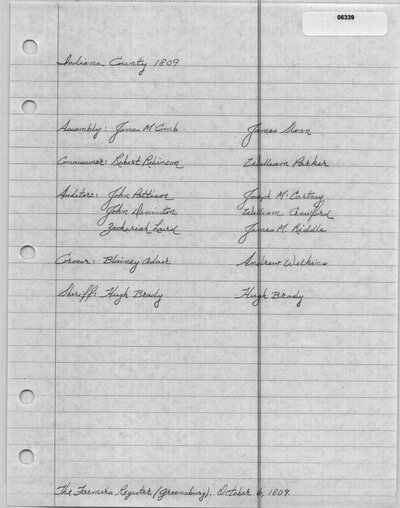 06339
Indiana County 1809
Assembly: James McComb James Sloan
Commissioner: Robert Robinson William Parker
Auditors: John Pattison Joseph McCartney
John Denniston William Crawford
Zachariah Laird James M. Riddle
Coroner: Blainey Adair Andrew Wilkins
Sheriff: Hugh Brady Hugh Brady
The Farmers Register (Greensburg). October 6, 1809.